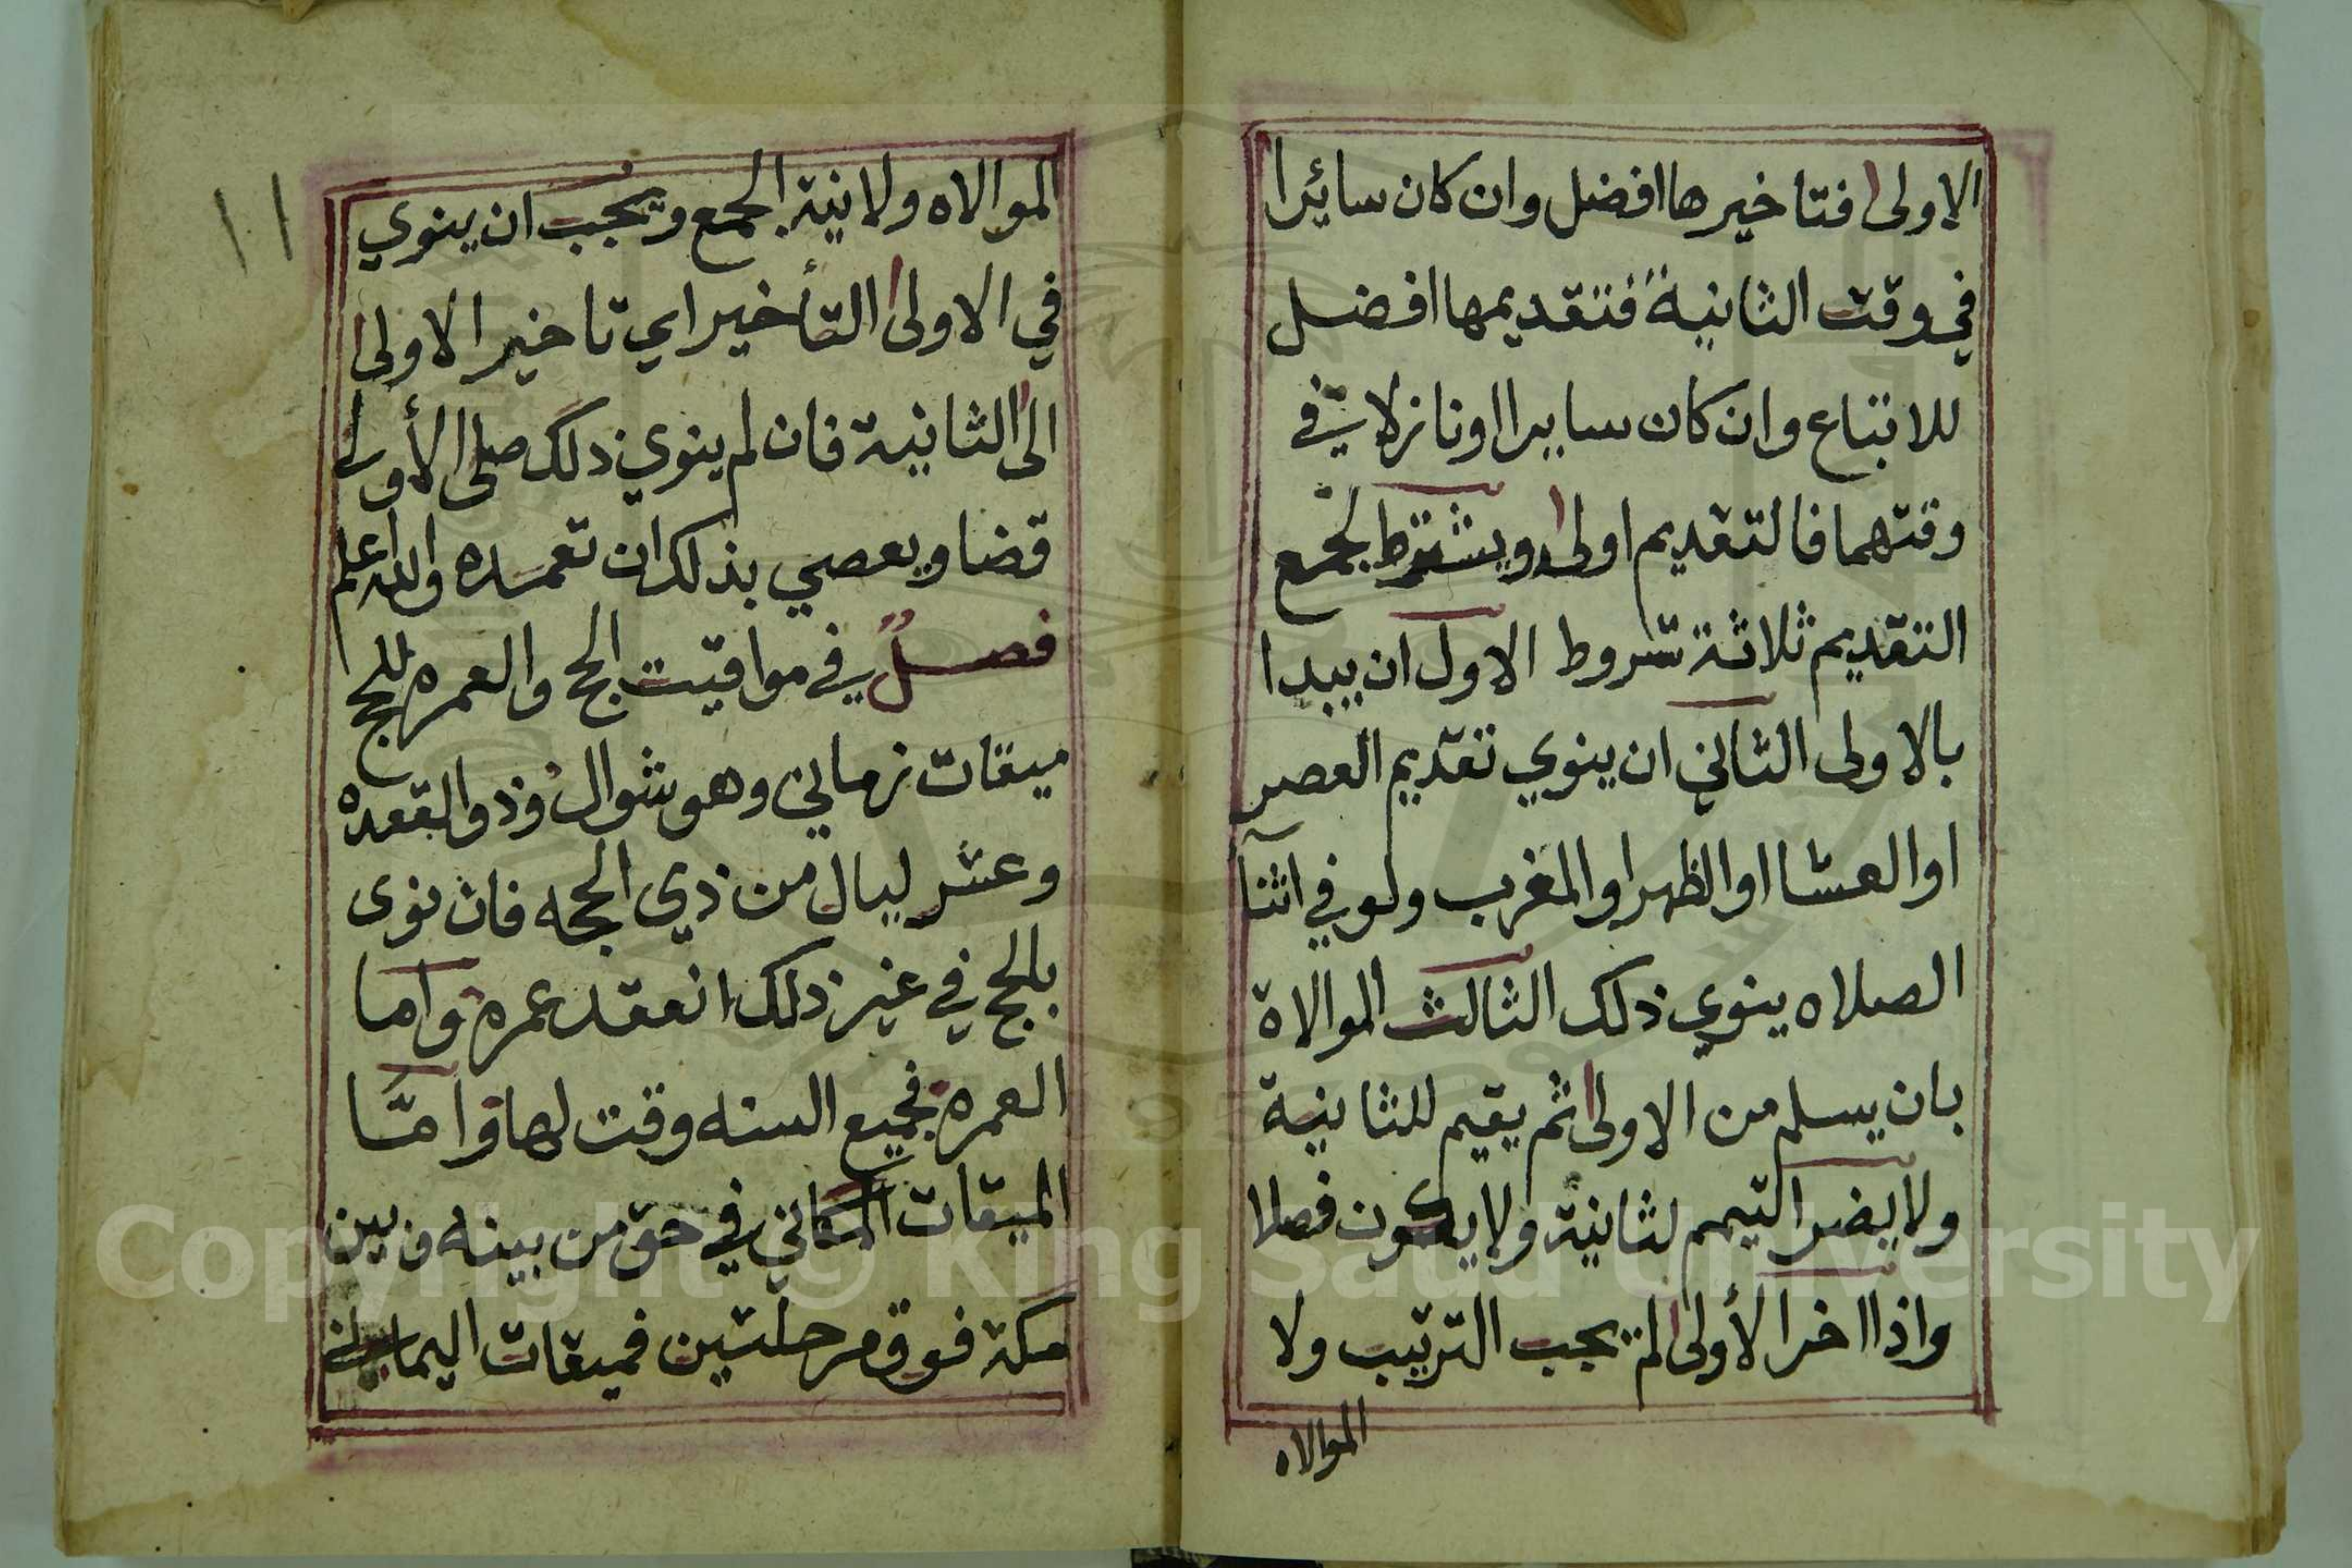 الاولى فتاخيرها افضل وان كان سائرا
في وقت الثانية فتقديمها افضل
للاتباع وان كان سايرا او نازلا في
وقتهما فالتقديم اولى ويشترط لجمع
التقديم ثلاثة شروط الاول ان يبدا
بالاولى الثاني ان ينوي تقديم العصر
او العشا او الظهر او المغرب ولو في اثنا
الصلاه ينوي ذلك الثالث الموالاة
بان يسلم من الاولى ثم يقيم للثانية
ولا يضر التيمم لثانية ولا يكون فصلا
واذا اخر الأولى لم يجب الترتيب ولا
الموالاه
١١
الموالاه ولا نية الجمع ويجب ان ينوي
في الاولى التأخير اي تاخير الاولى
الى الثانية فان لم ينوي ذلك صلى الأولى
قضا ويعصي بذلك ان تعمده والله اعلم
فصل في مواقيت الحج والعمره للحج
ميقات زماني وهو شوال وذو القعده
وعشر ليال من ذي الحجه فان نوى
بالحج في غير ذلك انعقد عمره واما
العمره فجميع السنه وقت لها وامّا
الميقات المكاني في حق من بينه وبين
مكة فوق مرحلتين فميقات اليماني
Copyright © King Saud University